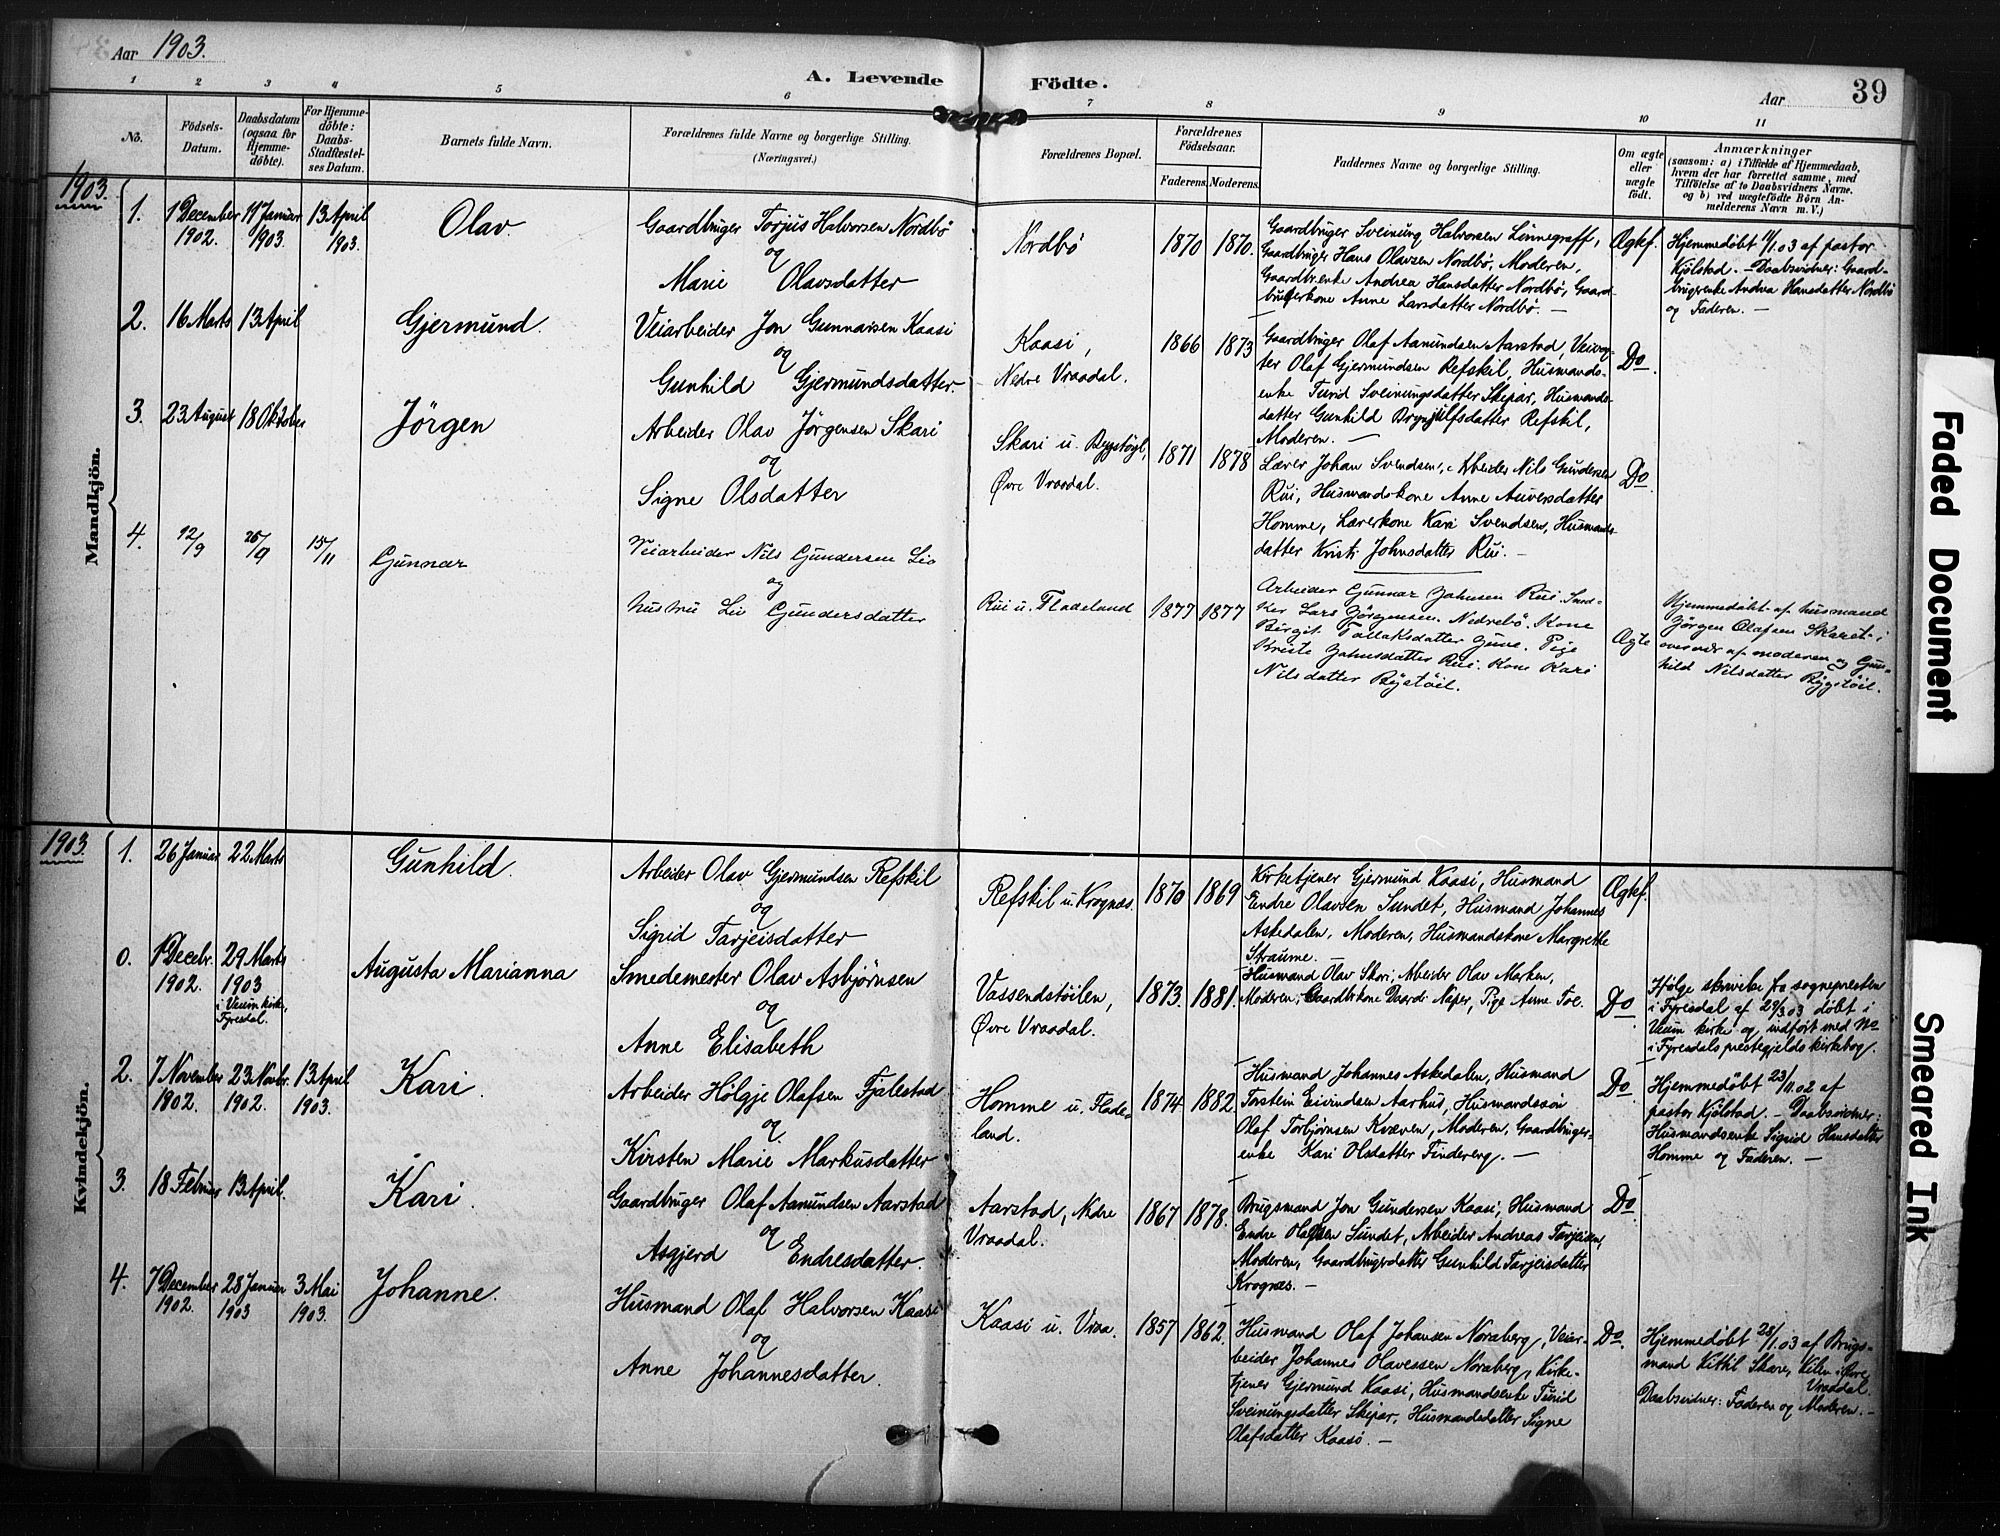 Aar 1903.
A. Levende Födte.
Aar
39
1 2 3 4 5 6 7 8 9 10 11
Nö.
Födsels-Datum.
Daabsdatum (ogsaa for Hjemme-döbte).
For Hjemme-döbte: Daabs-Stadfæstel-ses Datum.
Barnets fulde Navn.
Forældrenes fulde Navne og borgerlige Stilling.
(Næringsvei.)
Forældrenes Bopæl.
Forældrenes Födselsaar.
Faderens. Moderens.
Faddernes Navne og borgerlige Stilling.
Om ægte eller uægte födt.
Anmærkninger
(saasom: a) i Tilfælde af Hjemmedaab,
hvem der har forrettet samme, med
Tilföielse af to Daabsvidners Navne.
og b) ved uægtefödte Börn An-
melderens Navn m. V.)
Mandkjön.
1903.
1. 1 December 1902. 11 Januar 1903. 13 April 1903.
Olav.
Gaardbruger Torjus Halvorsen Nordbø
og
Marie Olavsdatter
Nordbø
1870 1870.
Gaardbruger Sveinung Halvorsen Linnegraff,
Gaardbruger Hans Olavsen Nordbø, Moderen,
Gaardbrenke Andrea Hansdatter Nordbø, Gaard-
brugerkone Anne Larsdatter Nordbø. —
Ægtef.
Hjemmedøbt 11/1.03 af pastor
Kjølstad. — Daabsvidner: Gaard-
brugrenke Andrea Hansdatter Nordbø
og Faderen. —
2. 16 Marts 13 April
Gjermund.
Veiarbeider Jon Gunnarsen Kaasi
og
Gunhild Gjermundsdatter.
Kaasi,
Nedre Vraadal.
1866 1873
Gaardbruger Olaf Aamundsen Aarstad, Veivog-
ter Olaf Gjermundsen Refskil, Husmands-
enke Turid Sveinungsdatter Skepar, Husmands-
datter Gunhild Brynjulfsdatter Refskil,
Moderen. —
Do
3. 23 August 18 Oktober
Jörgen
Arbeider Olav Jörgensen Skari
og
Signe Olsdatter
Skari u. Byggstøyl,
Øvre Vraadal.
1871 1878
Lærer Johan Svendsen, Arbeider Nils Gundersen
Rui, Husmandskone Anne Auversdatter
Homme, Lærerkone Kari Svendsen, Husmands-
datter Kristi Johnsdatter Rui. —
Do
4. 12/9 26/9 15/11
Gunnar
Veiarbeider Nils Gundersen Lio
og
hustru Liv Gundersdatter
Rui u. Fladeland
1877 1877
Arbeider Gunnar Johnsen Rui. Sned-
ker Lars Jørgensen Nedrebö. Kone
Birgit Tallaksdatter . Pige
Kristi Johnsdatter Rui. Kone Kari
Nilsdatter Bystöil.
Ægte
Hjemmedøbt af husmand
Jörgen Olafsen Skarei i
overvær af moderen og Gun-
hild Nilsdatter Bygstöil.
Kvindekjön.
1903
1. 26 Januar 22 Marts
Gunhild.
Arbeider Olav Gjermundsen Refskil
og
Sigrid Tarjeisdatter
Refskil u. Krognæs.
1870 1869
Kirketjener Gjermund Kaasi, Husmand
Endre Olavsen Sundet, Husmand Johannes
Askedalen, Moderen, Husmandskone Margrethe
Straume. —
Ægtef.
0. 1 Decbr. 1902. 29 Marts 1903 i Veum kirke, Fyresdal.
Augusta Marianna
Smedemester Olav Asbjørnsen
og
Anne Elisabeth
Vassendstøilen,
Øvre Vraadal.
1873. 1881.
Husmand Olav Skari, Arbeider Olav Marken,
Moderen, Gaardbrkone Naper, Pige Anne Toe.
Do
Ifølge skrivelse fra sognepresten
i Fyresdal af 29/3.03 døbt i
Veum kirke og indført med No
i Fyresdals prestegjelds kirkebog.
2. 7 November 1902. 23 Novbr. 1902. 13 April 1903.
Kari.
Arbeider Hølgje Olafsen Fjalestad
og
Kirsten Marie Markusdatter
Homme u. Flade-
land.
1874 1882
Husmand Johannes Askedalen, Husmand
Torstein Eivindsen Aarhus, Husmandssøn
Olaf Torbjørnsen Kvæven, Moderen, Gaardbruger-
enke Kari Olsdatter Findereng. —
Do
Hjemmedøbt 23/11.02 af
pastor Kjølstad. — Daabsvidner:
Husmandsenke Sigrid Hansdatter
Homme og Faderen. —
3. 18 Februar 13 April.
Kari.
Gaardbruger Olaf Aamundsen Aarstad
og
Asgjerd Endresdatter.
Aarstad, Nedre
Vraadal.
1867 1878.
Brugsmand Jon Gundersen Kaasi, Husmand
Endre Olafsen Sundet, Arbeider Andreas Tarjeisen,
Moderen, Gaardbrugerdatter Gunhild Tarjeisdatter
Krognæs. —
Do
4. 7 December 1902. 28 Januar 1903 3 Mai 1903.
Johanne.
Husmand Olaf Halvorsen Kaasi
og
Anne Johannesdatter.
Kaasi u. Vraa.
1857 1862.
Husmand Olaf Johansen Noraberg, Veiar-
beider Johannes Olavessen Noraberg, Kirke-
tjener Gjermund Kaasi, Husmandsenke Turid
Sveinungsdatter Skepar, Husmandsdatter Signe
Olafsdatter Kaasi. —
Do
Hjemmedøbt 28/1.03 af Brugs-
mand Kittil Skare, Kilen i Øvre
Vraadal.
Daabsvidner: Faderen og Moderen. —
Faded Document
Smeared Ink